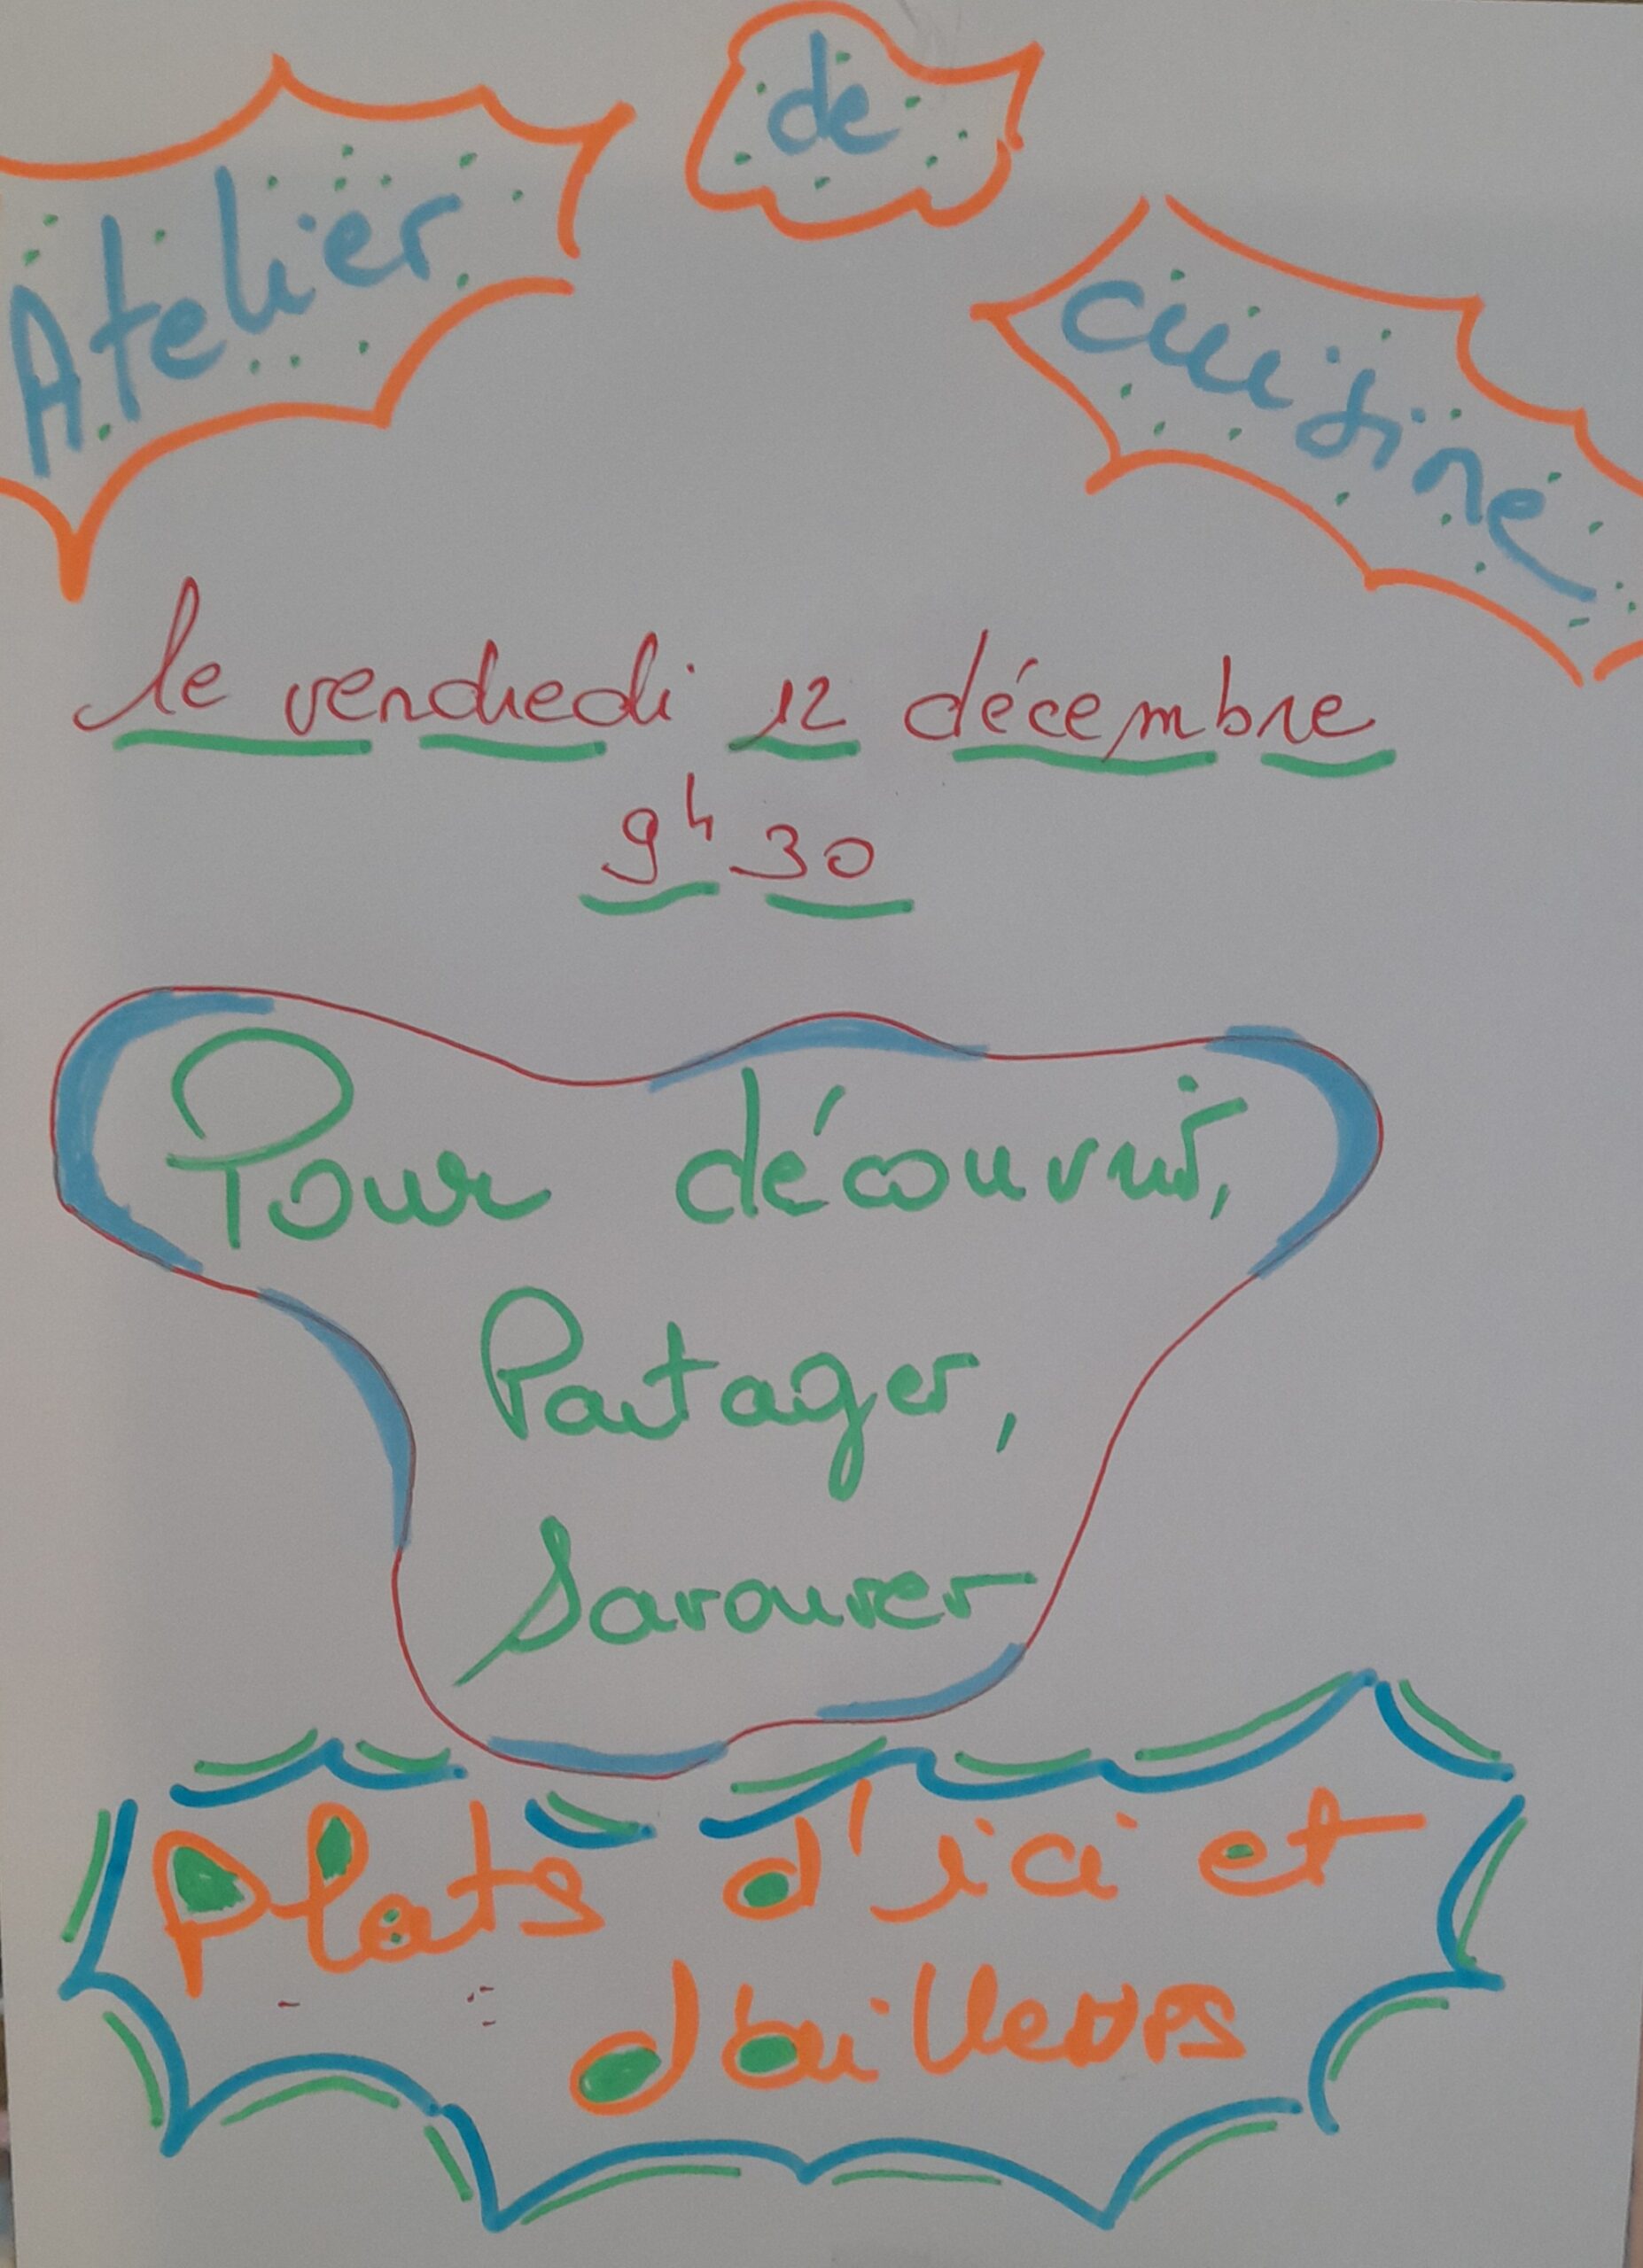 Atelier de cuisine
le vendredi 12 décembre
9h30
Pour découvrir,
Partager,
Savourer
Plats d'ici et
d'ailleurs